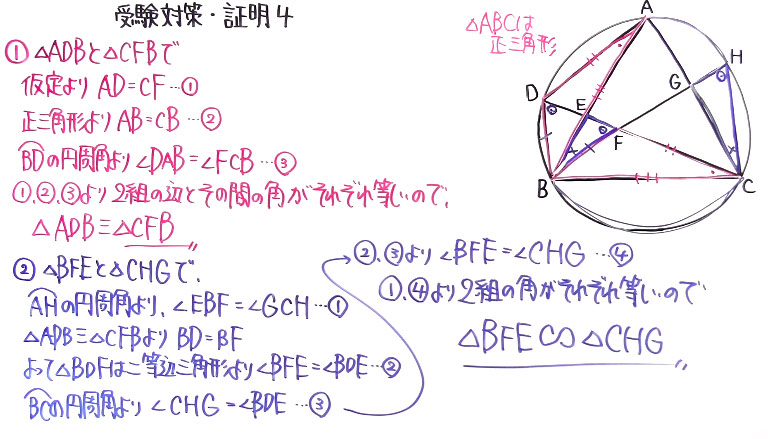 受験対策・証明4
① △ADBと△CFBで
仮定より AD=CF…①
正三角形より AB=CB…②
BDの円周角より ∠DAB=∠FCB…③
①,②,③より2組の辺とその間の角がそれぞれ等しいので,
△ADB≡△CFB
② △BFEと△CHGで,
AHの円周角より,∠EBF=∠GCH…①
△ADB≡△CFBより BD=BF
よって△BDFは二等辺三角形より∠BFE=∠BDE…②
BCの円周角より ∠CHG=∠BDE…③
②,③より ∠BFE=∠CHG…④
①,④より2組の角がそれぞれ等しいので
△BFE∽△CHG
△ABCは
正三角形
A
H
G
D
E
F
B
C